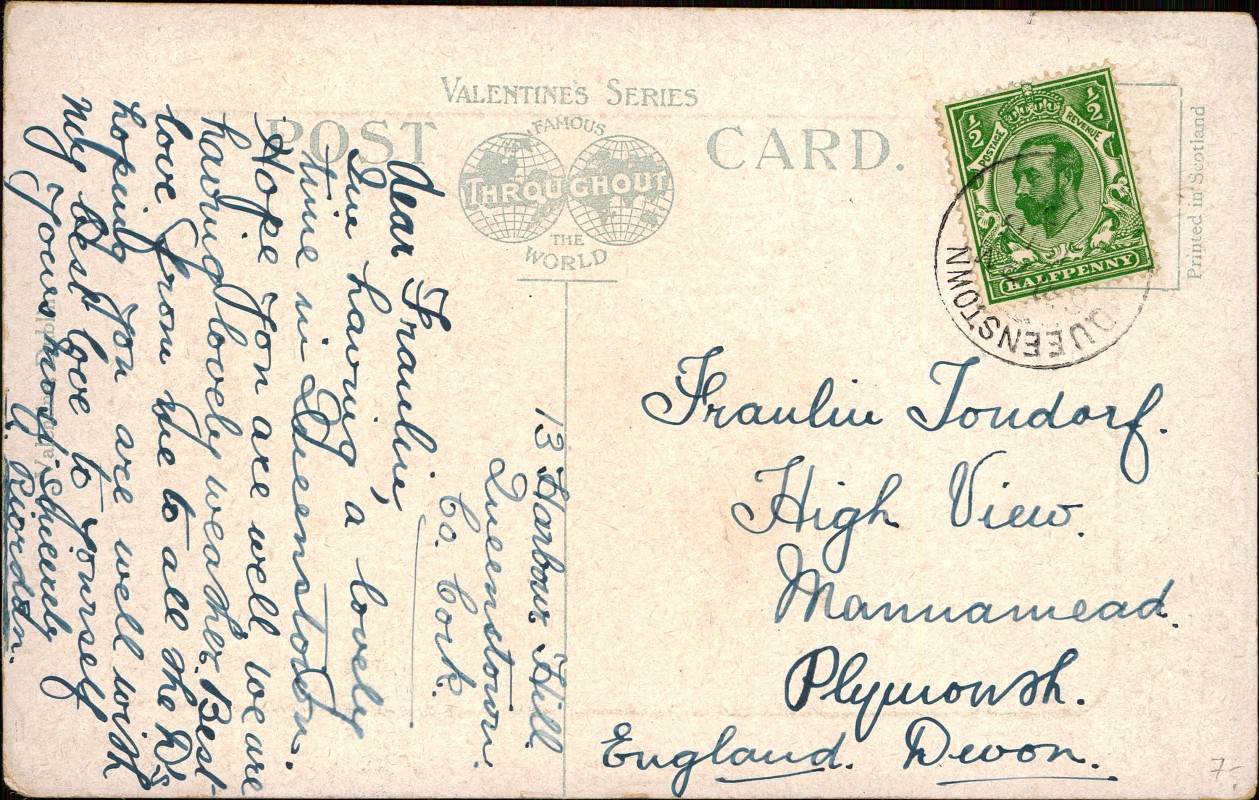 VALENTINE'S SERIES
POST CARD.
FAMOUS
THROUGHOUT
THE
WORLD
Printed in Scotland
½ ½
POSTAGE REVENUE
HALFPENNY
QUEENSTOWN
13 Harbour Hill
Queenstown.
Co. Cork.
Dear Fraulin,
Im having a lovely
time in Queenstown.
Hope you are well we are
having lovely weather. Best
love from me to all the Drs
hoping you are well with
my best love to yourself
Yours most sincerely
Riordan.
Fraulin Tondorf.
High View.
Mannamead.
Plymouth.
England. Devon.
7-